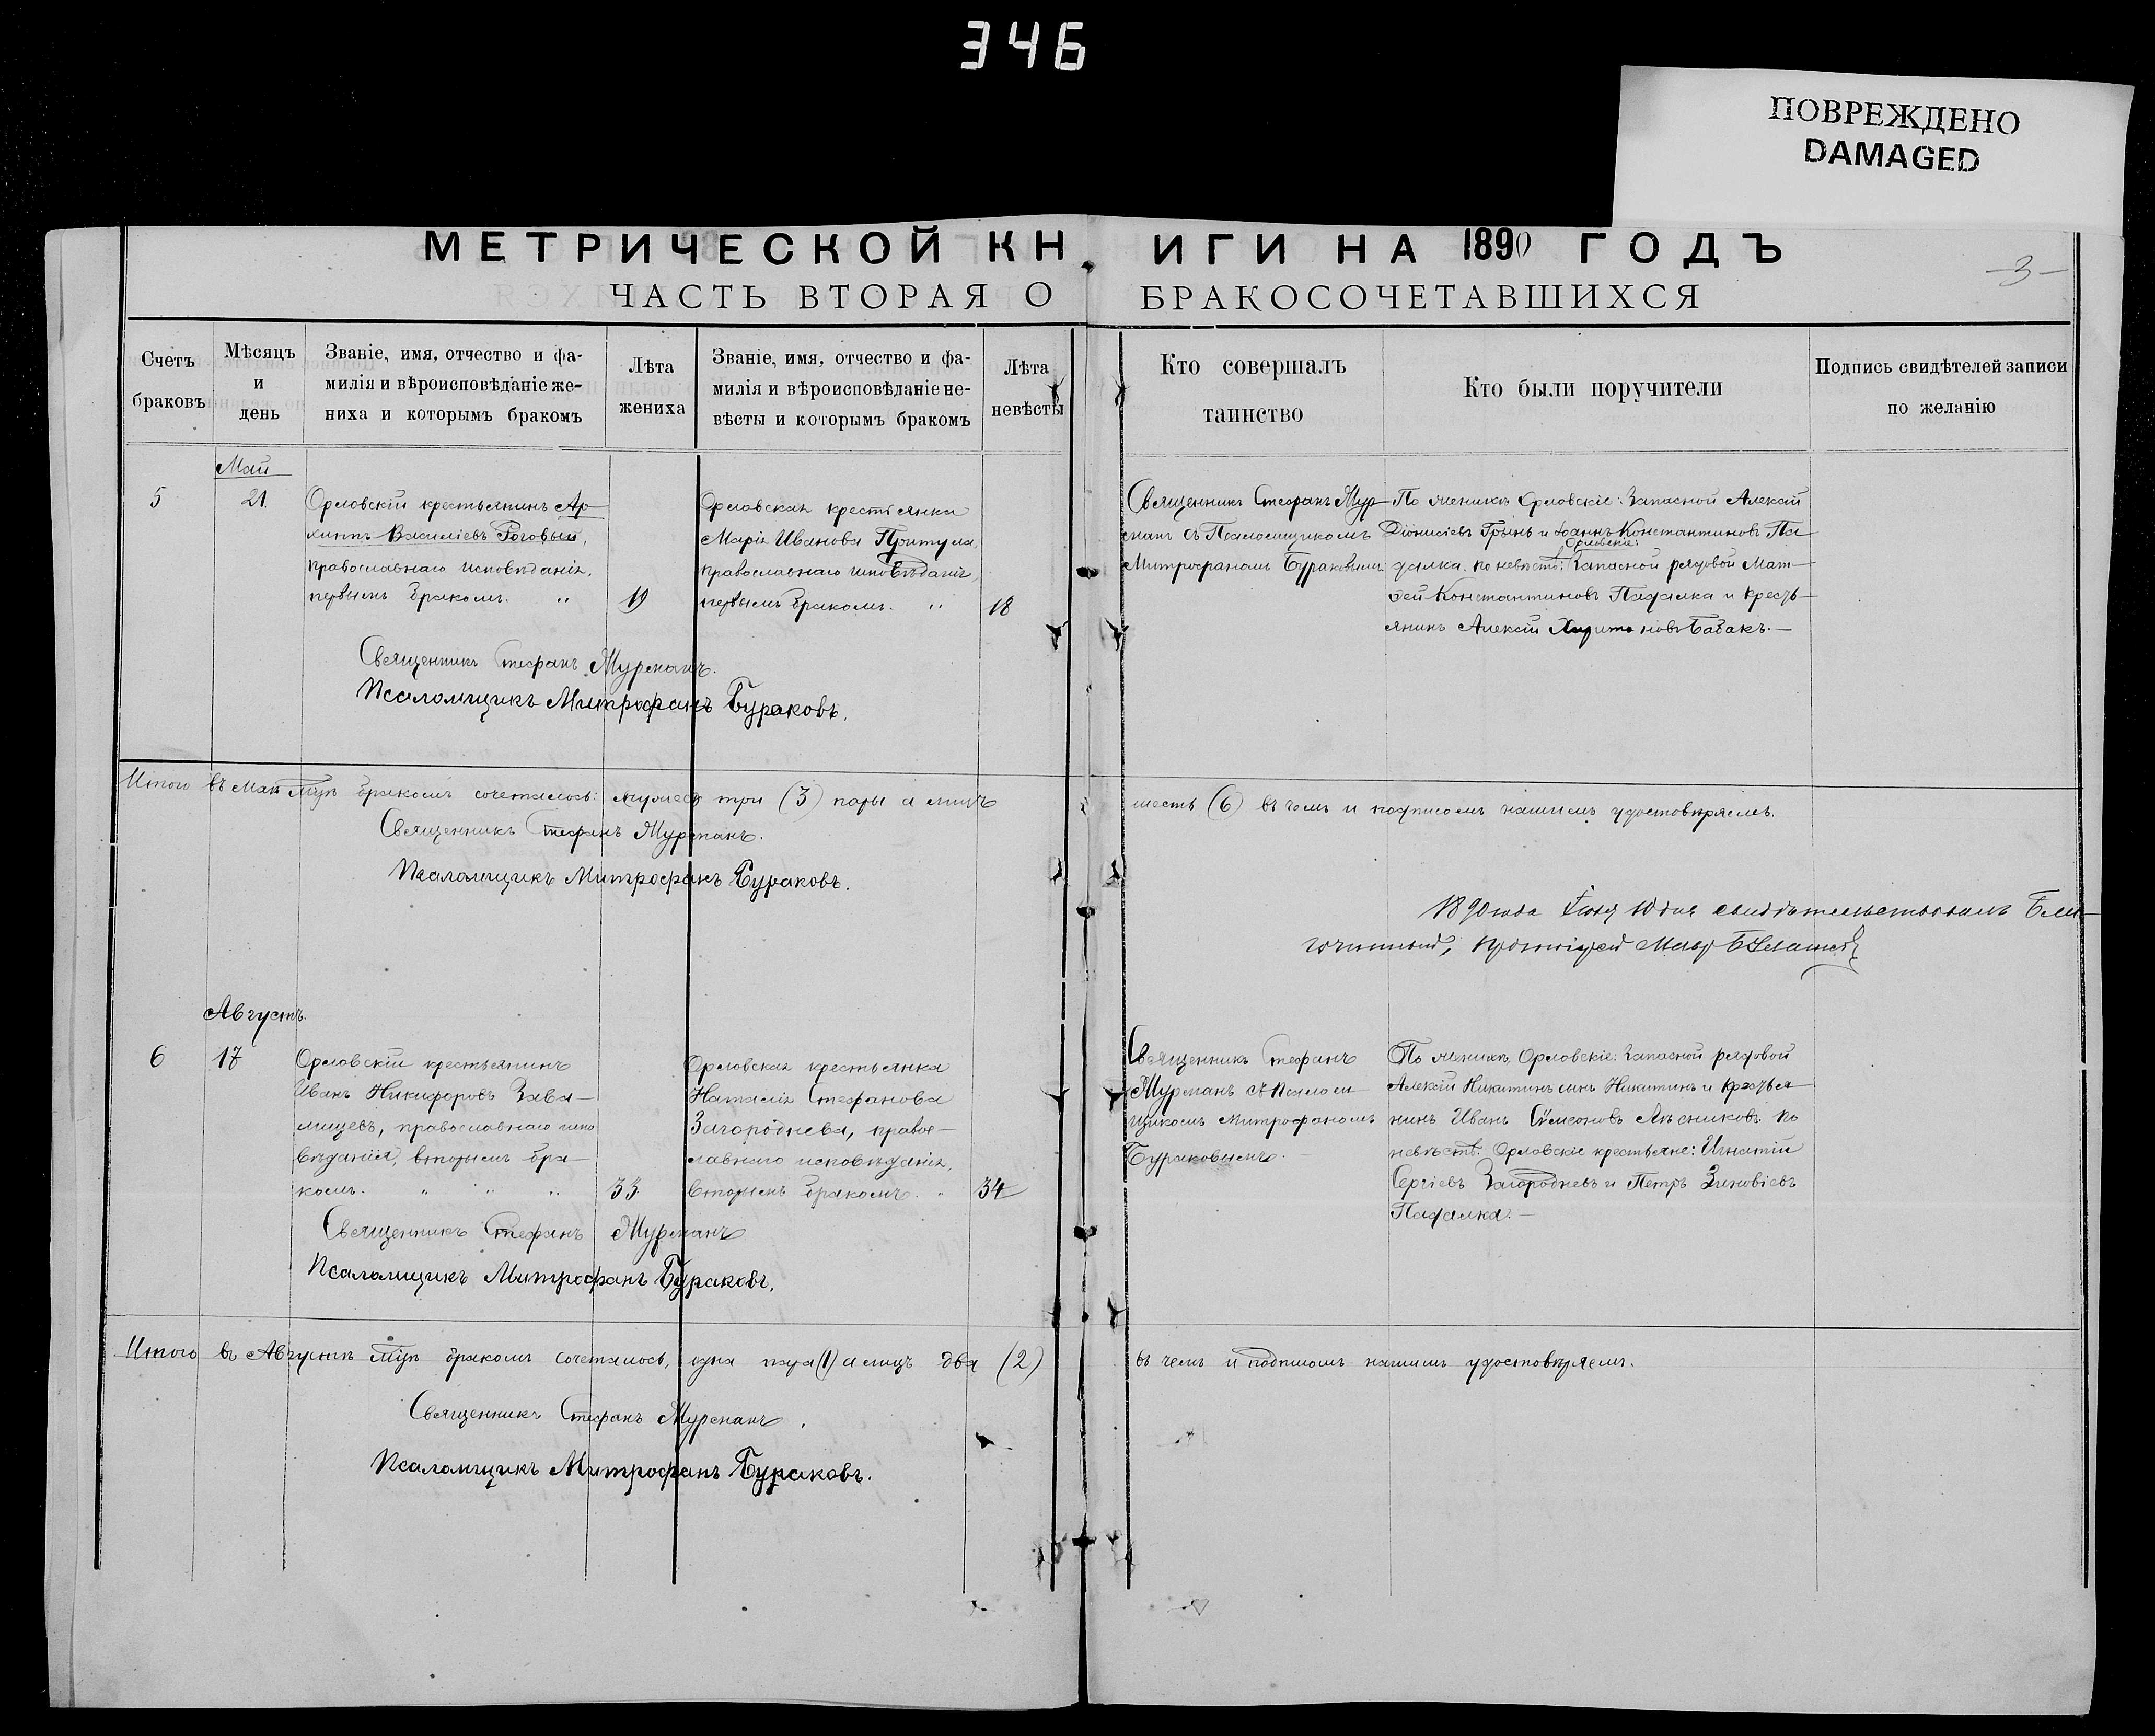 346
ПОВРЕЖДЕНО
DAMAGED
МЕТРИЧЕСКОЙ КНИГИ НА 1890 ГОДЪ
-3-
ЧАСТЬ ВТОРАЯ О БРАКОСОЧЕТАВШИХСЯ
Счетъ
браковъ
Мѣсяцъ
и
день
Званіе, имя, отчество и фа-
милія и вѣроисповѣданіе же-
ниха и которымъ бракомъ
Лѣта
жениха
Званіе, имя, отчество и фа-
милія и вѣроисповѣданіе не-
вѣсты и которымъ бракомъ
Лѣта
невѣсты
Кто совершалъ
таинство
Кто были поручители
Подпись свидѣтелей записи
по желанію
Май
5
21.
Орловскій крестьянинъ Ар-
хиппъ Василіевъ Роговый,
православнаго исповѣданія,
первымъ бракомъ. "
19
Орловская крестьянка
Марія Иванова Притула,
православнаго исповѣданія,
первымъ бракомъ. "
18
Священникъ Стефанъ Мур-
манъ съ Псаломщикомъ
Митрофаномъ Бураковымъ
По женихѣ Орловскіе: Запасной Алексій
Діонисіевъ Гринь и Іоаннъ Константиновъ Па-
Орловскіе:
далка. по невѣстѣ: Запасной рядовой Мат-
ѳей Константиновъ Падалка и кресть-
янинъ Алексій Харитоновъ Бабакъ.—
Священникъ Стефанъ Мурманъ.
Псаломщикъ Митрофанъ Бураковъ.
Итого въ Маѣ м̃цѣ бракомъ сочеталось: три (3) пары а лицъ шесть (6) въ чемъ и подписомъ нашимъ удостовѣряемъ.
Священникъ Стефанъ Мурманъ.
Псаломщикъ Митрофанъ Бураковъ.
1890 года 10 дня свидѣтельствовалъ Бла-
гочинный, протоіерей
Августъ.
6
17
Орловскій крестьянинъ
Иванъ Никифоровъ Зава-
лищевъ, православнаго испо-
вѣданія, вторымъ бра-
комъ. " " "
33
Орловская крестьянка
Наталія Стефанова
Загороднева, право-
славнаго исповѣданія,
вторымъ бракомъ. "
34
Священникъ Стефанъ
Мурманъ съ Псаломщ-
щикомъ Митрофаномъ
Бураковымъ.
По женихѣ Орловскіе: Запасной рядовой
Алексій Никитинъ сынъ Никитинъ и крестья-
нинъ Иванъ Сѵмеоновъ Лѣсниковъ. по
невѣстѣ: Орловскіе крестьяне: Игнатій
Сергіевъ Загородневъ и Петръ Зиновіевъ
Падалка.—
Священникъ Стефанъ Мурманъ
Псаломщикъ Митрофанъ Бураковъ.
Итого въ Августѣ м̃цѣ бракомъ сочеталось, одна пара (1) а лицъ два (2) въ чемъ и подписомъ нашимъ удостовѣряемъ.
Священникъ Стефанъ Мурманъ.
Псаломщикъ Митрофанъ Бураковъ.